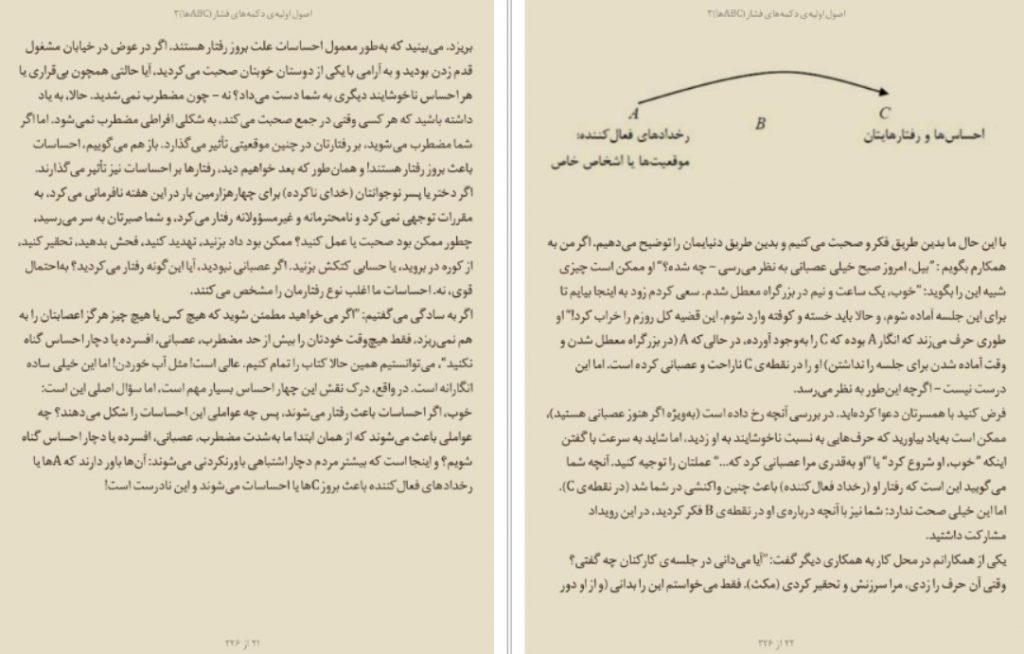 اصول اولیه‌ی دکمه‌های فشار (ABCها)۳
بریزد. می‌بینید که به‌طور معمول احساسات علت بروز رفتار هستند. اگر در عوض در خیابان مشغول
قدم زدن بودید و به آرامی با یکی از دوستان خوبتان صحبت می‌کردید، آیا حالتی همچون بی‌قراری یا
هر احساس ناخوشایند دیگری به شما دست می‌داد؟ نه – چون مضطرب نمی‌شدید. حالا، به یاد
داشته باشید که هر کسی وقتی در جمع صحبت می‌کند، به شکلی افراطی مضطرب نمی‌شود. اما اگر
شما مضطرب می‌شوید، بر رفتارتان در چنین موقعیتی تأثیر می‌گذارد. باز هم می‌گوییم، احساسات
باعث بروز رفتار هستند! و همان‌طور که بعد خواهیم دید، رفتارها بر احساسات نیز تأثیر می‌گذارند.
اگر دختر یا پسر نوجوانتان (خدای ناکرده) برای چهارهزارمین بار در این هفته نافرمانی می‌کرد، به
مقررات توجهی نمی‌کرد و نامحترمانه و غیرمسؤولانه رفتار می‌کرد، و شما صبرتان به سر می‌رسید،
چطور ممکن بود صحبت یا عمل کنید؟ ممکن بود داد بزنید، تهدید کنید، فحش بدهید، تحقیر کنید،
از کوره در بروید، یا حسابی کتکش بزنید. اگر عصبانی نبودید، آیا این‌گونه رفتار می‌کردید؟ به‌احتمال
قوی، نه. احساسات ما اغلب نوع رفتارمان را مشخص می‌کنند.
اگر به سادگی می‌گفتیم: "اگر می‌خواهید مطمئن شوید که هیچ کس یا هیچ چیز هرگز اعصابتان را به
هم نمی‌ریزد، فقط هیچ‌وقت خودتان را بیش از حد مضطرب، عصبانی، افسرده یا دچار احساس گناه
نکنید"، می‌توانستیم همین حالا کتاب را تمام کنیم. عالی است! مثل آب خوردن! اما این خیلی ساده
انگارانه است. در واقع، درک نقش این چهار احساس بسیار مهم است، اما سؤال اصلی این است:
خوب، اگر احساسات باعث رفتار می‌شوند، پس چه عواملی این احساسات را شکل می‌دهند؟ چه
عواملی باعث می‌شوند که از همان ابتدا ما به‌شدت مضطرب، عصبانی، افسرده یا دچار احساس گناه
شویم؟ و اینجا است که بیشتر مردم دچار اشتباهی باورنکردنی می‌شوند: آن‌ها باور دارند که Aها یا
رخدادهای فعال‌کننده باعث بروز Cها یا احساسات می‌شوند و این نادرست است!
۲۱ از ۲۲۶
اصول اولیه‌ی دکمه‌های فشار (ABCها)۳
A
B
C
رخدادهای فعال‌کننده:
موقعیت‌ها یا اشخاص خاص
احساس‌ها و رفتارهایتان
با این حال ما بدین طریق فکر و صحبت می‌کنیم و بدین طریق دنیایمان را توضیح می‌دهیم. اگر من به
همکارم بگویم : "بیل، امروز صبح خیلی عصبانی به نظر می‌رسی – چه شده؟" او ممکن است چیزی
شبیه این را بگوید: "خوب، یک ساعت و نیم در بزرگراه معطل شدم. سعی کردم زود به اینجا بیایم تا
برای این جلسه آماده شوم، و حالا باید خسته و کوفته وارد شوم. این قضیه کل روزم را خراب کرد!" او
طوری حرف می‌زند که انگار A بوده که C را به‌وجود آورده، در حالی‌که A (در بزرگراه معطل شدن و
وقت آماده شدن برای جلسه را نداشتن) او را در نقطه‌ی C ناراحت و عصبانی کرده است. اما این
درست نیست – اگرچه این‌طور به نظر می‌رسد.
فرض کنید با همسرتان دعوا کرده‌اید. در بررسی آنچه رخ داده است (به‌ویژه اگر هنوز عصبانی هستید)،
ممکن است به‌یاد بیاورید که حرف‌هایی به نسبت ناخوشایند به او زدید، اما شاید به سرعت با گفتن
اینکه "خوب، او شروع کرد" یا "او به‌قدری مرا عصبانی کرد که..." عملتان را توجیه کنید. آنچه شما
می‌گویید این است که رفتار او (رخداد فعال کننده) باعث چنین واکنشی در شما شد (در نقطه‌ی C).
اما این خیلی صحت ندارد: شما نیز با آنچه درباره‌ی او در نقطه‌ی B فکر کردید، در این رویداد
مشارکت داشتید.
یکی از همکارانم در محل کار به همکاری دیگر گفت: "آیا می‌دانی در جلسه‌ی کارکنان چه گفتی؟
وقتی آن حرف را زدی، مرا سرزنش و تحقیر کردی (مکث). فقط می‌خواستم این را بدانی (و از او دور
۲۲ از ۲۲۶